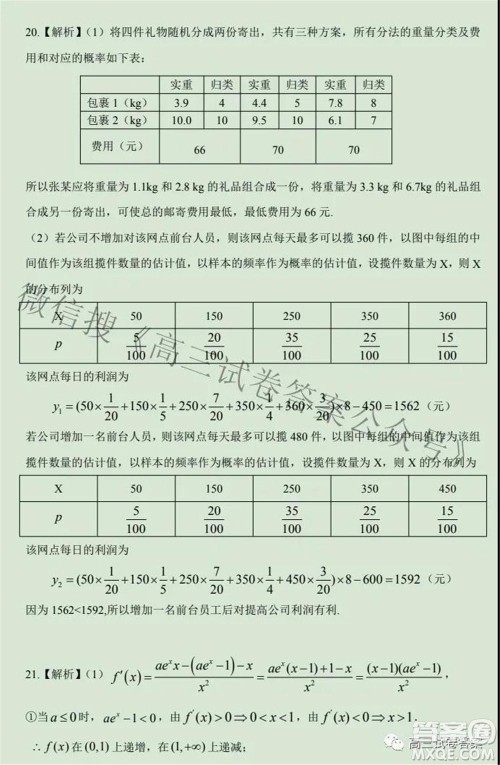 20.【解析】（1）将四件礼物随机分成两份寄出，共有三种方案，所有分法的重量分类及费
用和对应的概率如下表：
实重 归类 实重 归类 实重 归类
包裹 1（kg） 3.9 4 4.4 5 7.8 8
包裹 2（kg） 10.0 10 9.5 10 6.1 7
费用（元） 66 70 70
所以张某应将重量为 1.1kg 和 2.8 kg 的礼品组合成一份，将重量为 3.3 kg 和 6.7kg 的礼品组
合成另一份寄出，可使总的邮寄费用最低，最低费用为 66 元.
（2）若公司不增加对该网点前台人员，则该网点每天最多可以揽 360 件，以图中每组的中
间值作为该组揽件数量的估计值，以样本的频率作为概率的估计值，设揽件数量为 X，则 X
的分布列为
X 50 150 250 350 360
P 5/100 20/100 35/100 25/100 15/100
该网点每日的利润为
y₁=(50×1/20+150×1/5+250×7/20+350×1/4+360×3/20)×8−450=1562（元）
若公司增加一名前台人员，则该网点每天最多可以揽 480 件，以图中每组的中间值作为该组
揽件数量的估计值，以样本的频率作为概率的估计值，设揽件数量为 X，则 X 的分布列为
X 50 150 250 350 450
P 5/100 20/100 35/100 25/100 15/100
该网点每日的利润为
y₂=(50×1/20+150×1/5+250×7/20+350×1/4+450×3/20)×8−600=1592（元）
因为 1562<1592,所以增加一名前台员工后对提高公司利润有利.
21.【解析】（1）f′(x)=(aeˣx−(aeˣ−1)−x)/x²=(aeˣ(x−1)+1−x)/x²=((x−1)(aeˣ−1))/x²，
①当a≤0时，aeˣ−1<0，由f′(x)>0⇒0<x<1，由f′(x)<0⇒x>1，
∴f(x)在(0,1)上递增，在(1,+∞)上递减；
微信搜《高三试卷答案公众号》
高三试卷答案